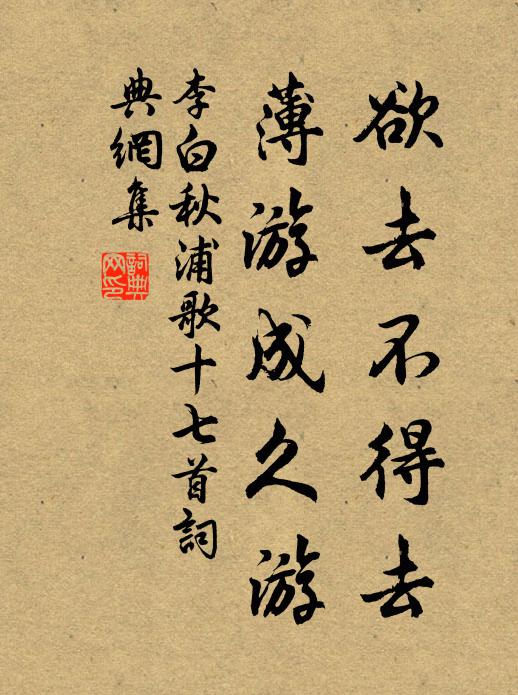 欲去不得去
薄游成久游
李白秋浦歌十七首詞
典網集
詞典
网印